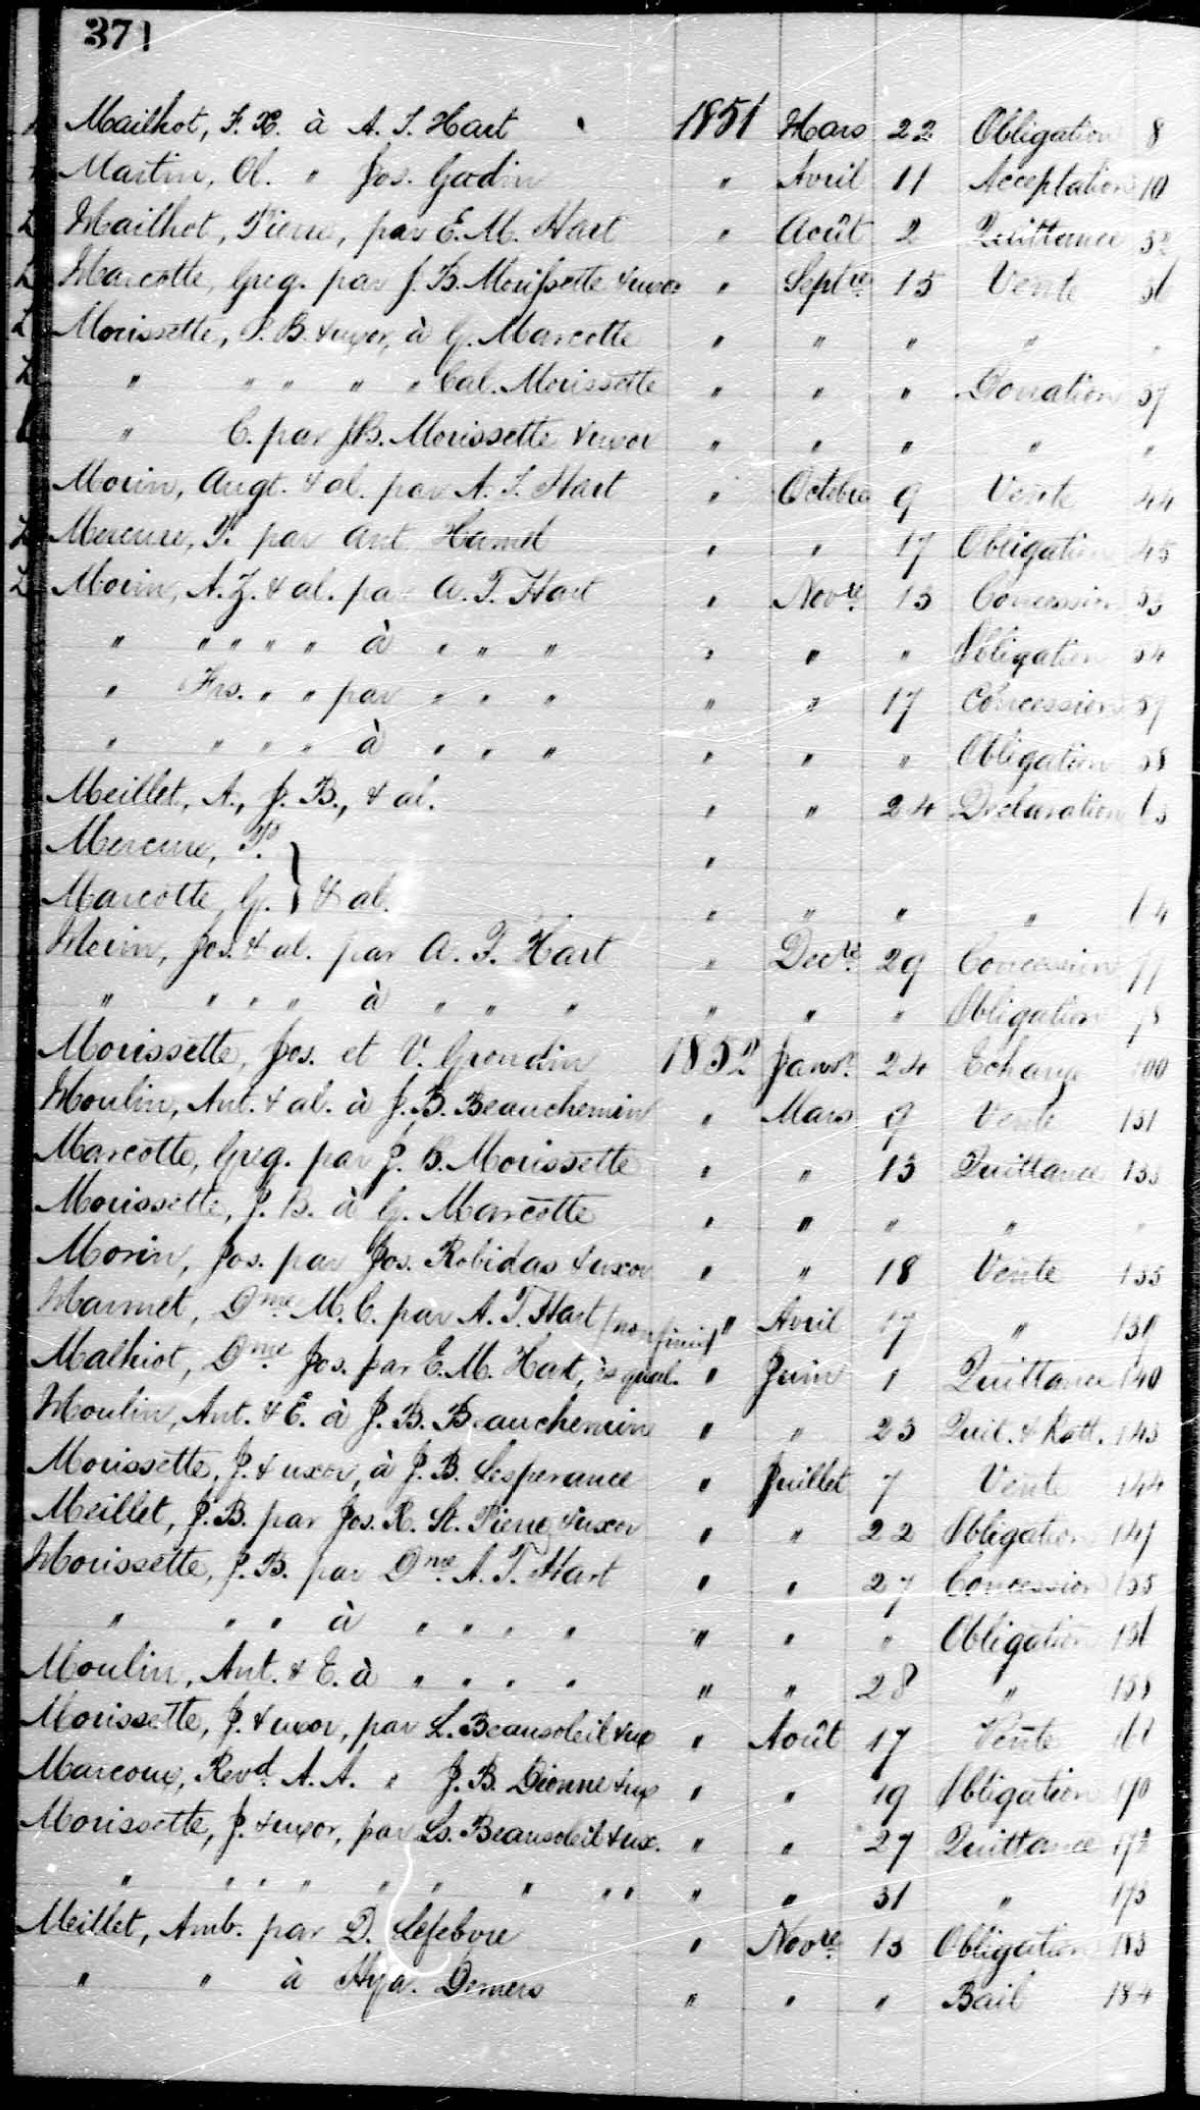 371
Mailhot, F. X. à A. T. Hart 1851 Mars 22 Obligation 8
Martin, Ol. " Jos. Godin " Avril 11 Acceptation 10
L Mailhot, Pierre, par E. M. Hart " Août 2 Quittance 32
L Marcotte, Greg. par J. B. Morissette & uxor " Septre 15 Vente 36
L Morissette, J. B. & uxor, à G. Marcotte " " " " "
L " " " " " Cal. Morissette " " " Donation 37
L " C. par J.B. Morissette & uxor " " " " "
Morin, Augt. & al. par A. T. Hart " Octobre 9 Vente 44
L Mercure, P. par Ant. Hamel " " 17 Obligation 45
L Morin, A. Z. & al. par A. T. Hart " Novre 13 Concession 53
" " " " " à " " " " " " Obligation 54
" Frs. " " par " " " " " 17 Concession 57
" " " " à " " " " " " Obligation 58
Meillet, A., J. B., & al. " " 24 Declaration 63
Mercure, P. "
Marcotte, G. } & al. " " " " 64
Morin, Jos. & al. par A. T. Hart " Decre 29 Concession 77
" " " " à " " " " " " Obligation 78
Morissette, Jos. et V. Grondin 1852 Janvr 24 Echange 100
Moulin, Ant. & al. à J. B. Beauchemin " Mars 9 Vente 131
Marcotte, Greg. par J. B. Morissette " " 13 Quittance 133
Morissette, J. B. à G. Marcotte " " " " "
Morin, Jos. par Jos. Robidas & uxor " " 18 Vente 135
Dme M. C. par A. T. Hart (non fini) " Avril 17 " 139
Malhiot, Dme Jos. par E. M. Hart, ès qual. " Juin 1 Quittance 140
Moulin, Ant. & E. à J. B. Beauchemin " " 23 Quit. & Ratt. 143
Morissette, J. & uxor, à J. B. Lesperance " Juillet 7 Vente 144
Meillet, J. B. par Jos. R. St. Pierre & uxor " " 22 Obligation 149
Morissette, J. B. par Dme A. T. Hart " " 27 Concession 155
" " " à " " " " " " " Obligation 156
Moulin, Ant. & E. à " " " " " " 28 " 158
Morissette, J. & uxor, par L. Beausoleil & ux " Août 17 Vente 168
Marcoux, Revd. A. A. " J. B. Dionne & ux " " 19 Obligation 170
Morissette, J. & uxor, par Ls. Beausoleil & ux. " " 27 Quittance 172
" " " " " " " " " " " 31 " 173
Meillet, Amb. par D. Lefebvre " Novre 13 Obligation 183
" " à Hya. Demers " " " Bail 184